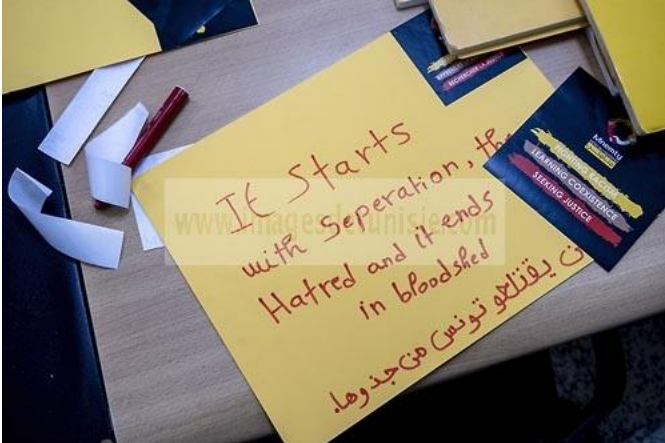 It Starts
with Seperation, the
Hatred and it ends
in bloodshed
يقتلعو تونس من جذوها.
www.imagesdetunisie.com
RECHERCHER LA JUSTICE
Mnemty
FIGHTING RACISM
LEARNING COEXISTENCE
SEEKING JUSTICE